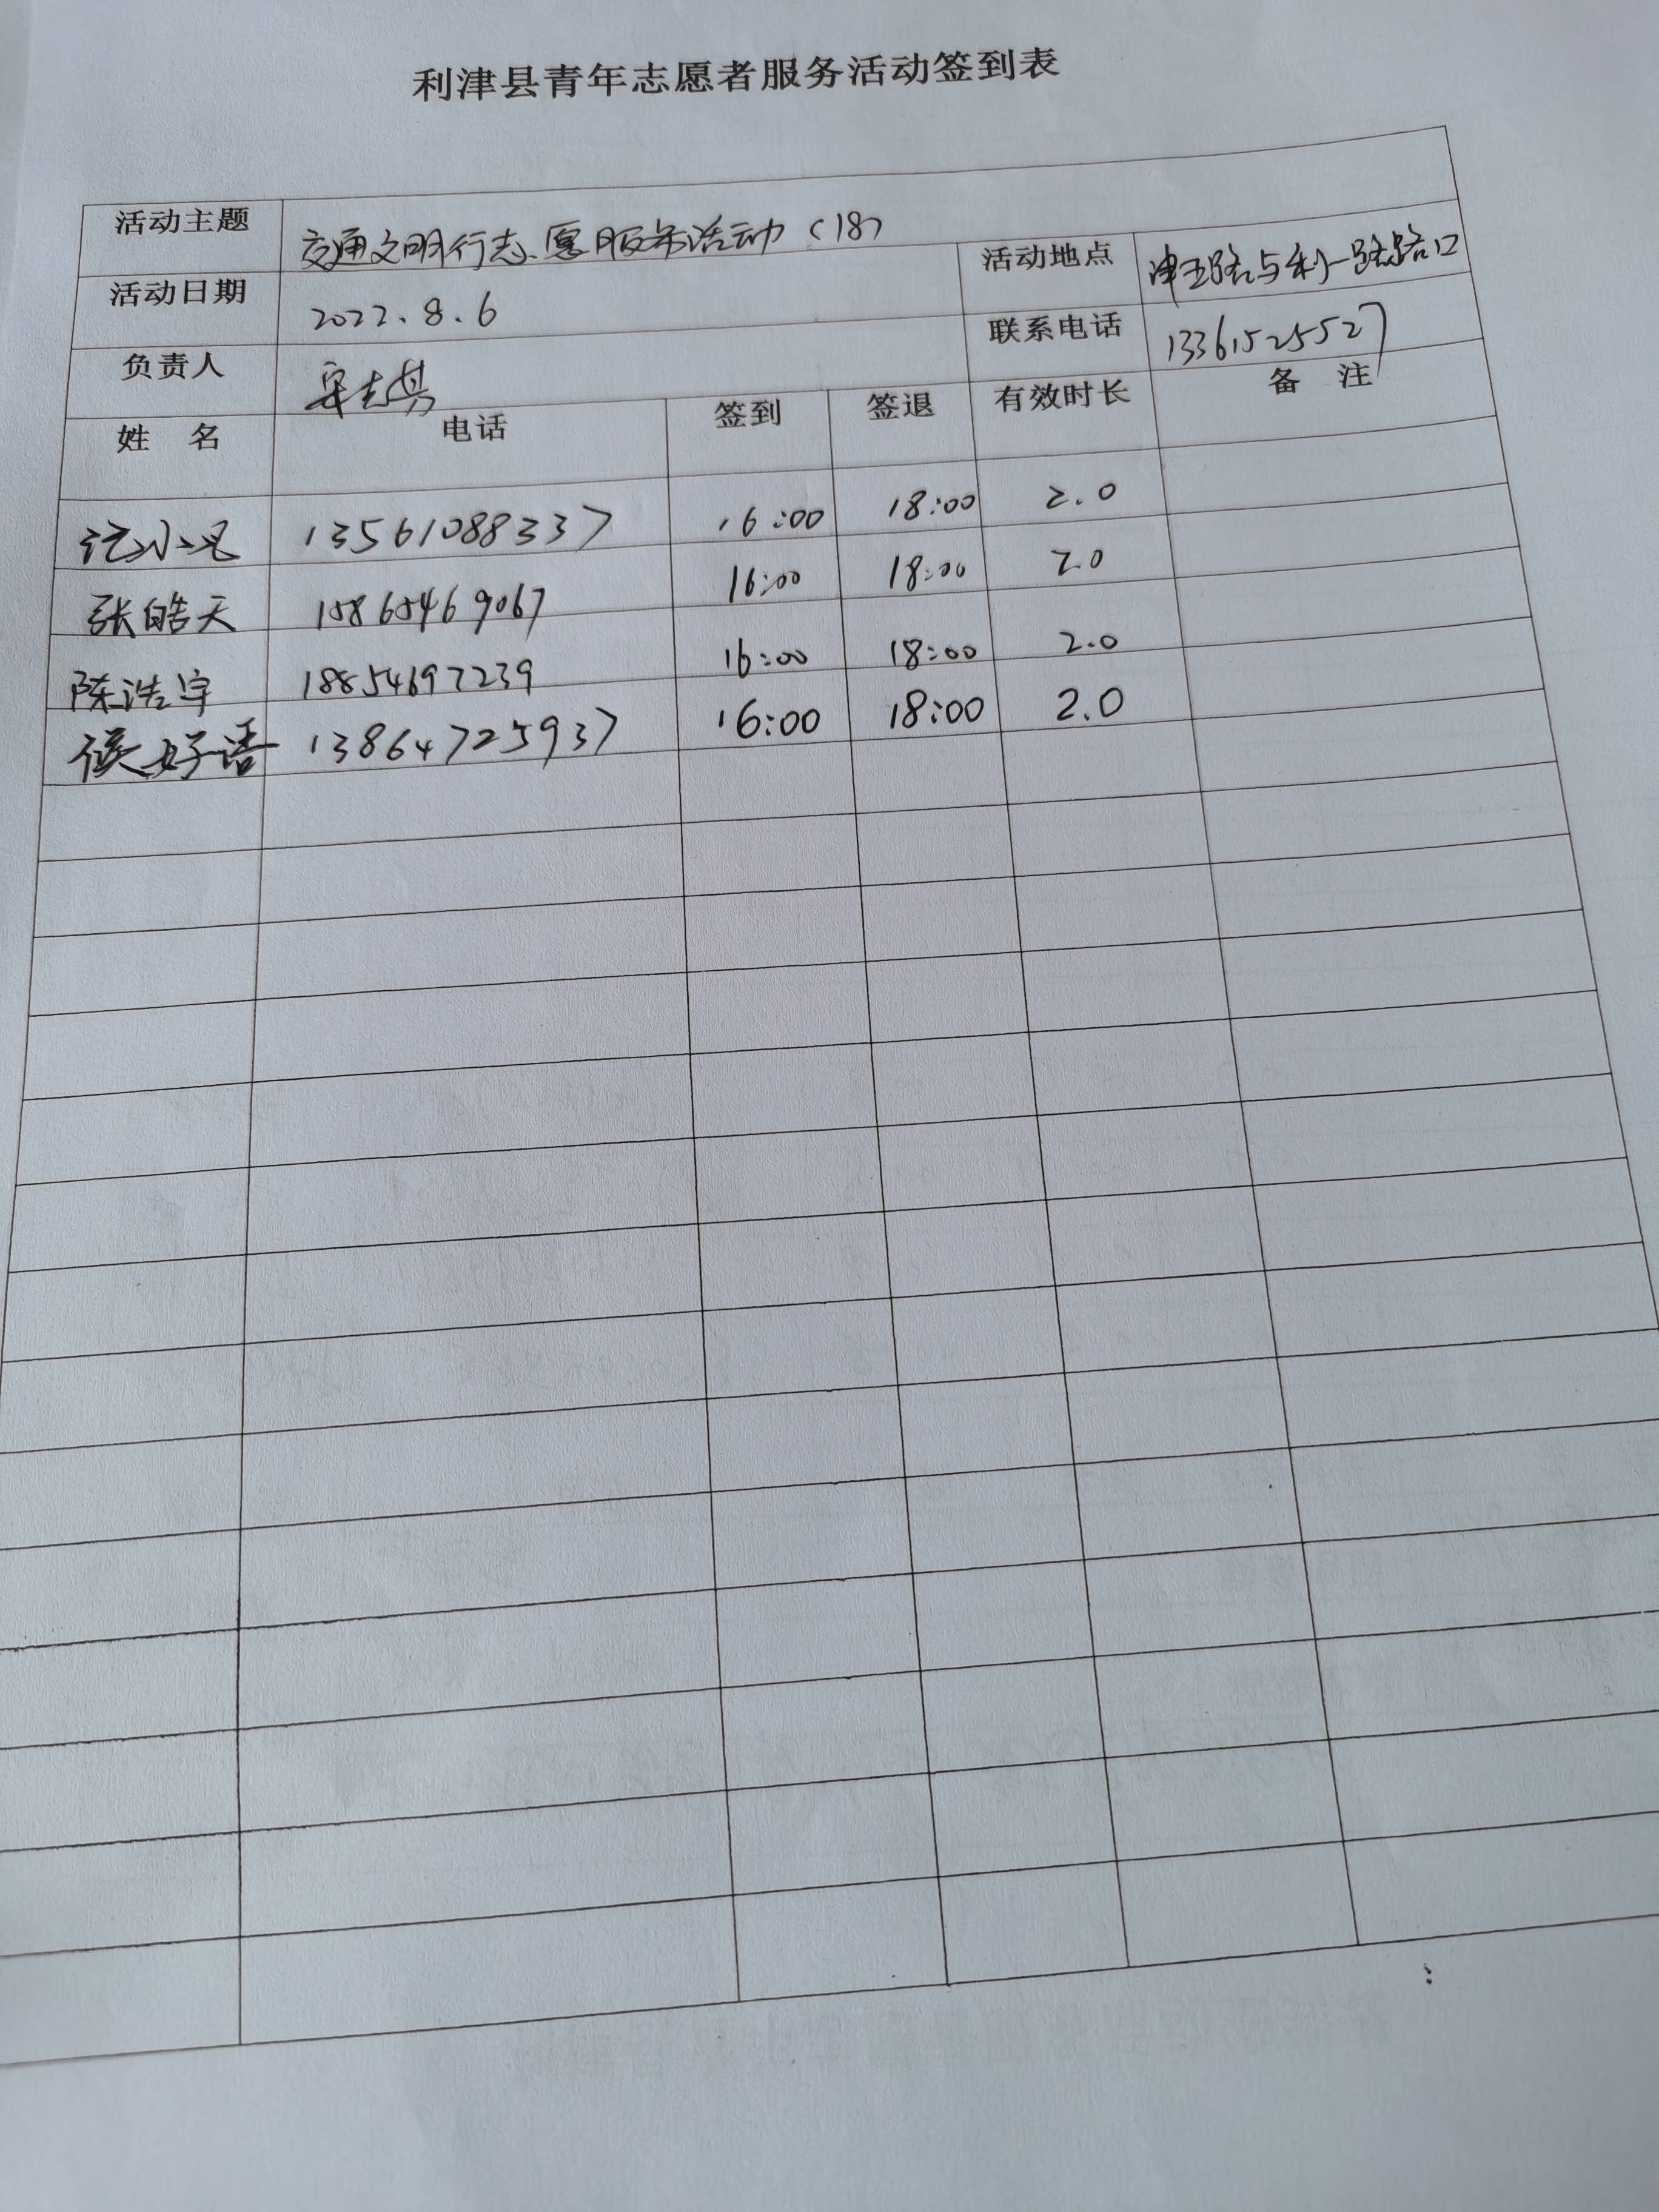 利津县青年志愿者服务活动签到表
活动主题 交通文明行志愿服务活动（18）
活动日期 2022.8.6 活动地点 津五路与利一路路口
负责人 联系电话 13361525527
姓 名 电话 签到 签退 有效时长 备 注
13561088337 16:00 18:00 2.0
张皓天 15865469067 16:00 18:00 2.0
陈浩宇 18854697239 16:00 18:00 2.0
侯好语 13864725937 16:00 18:00 2.0